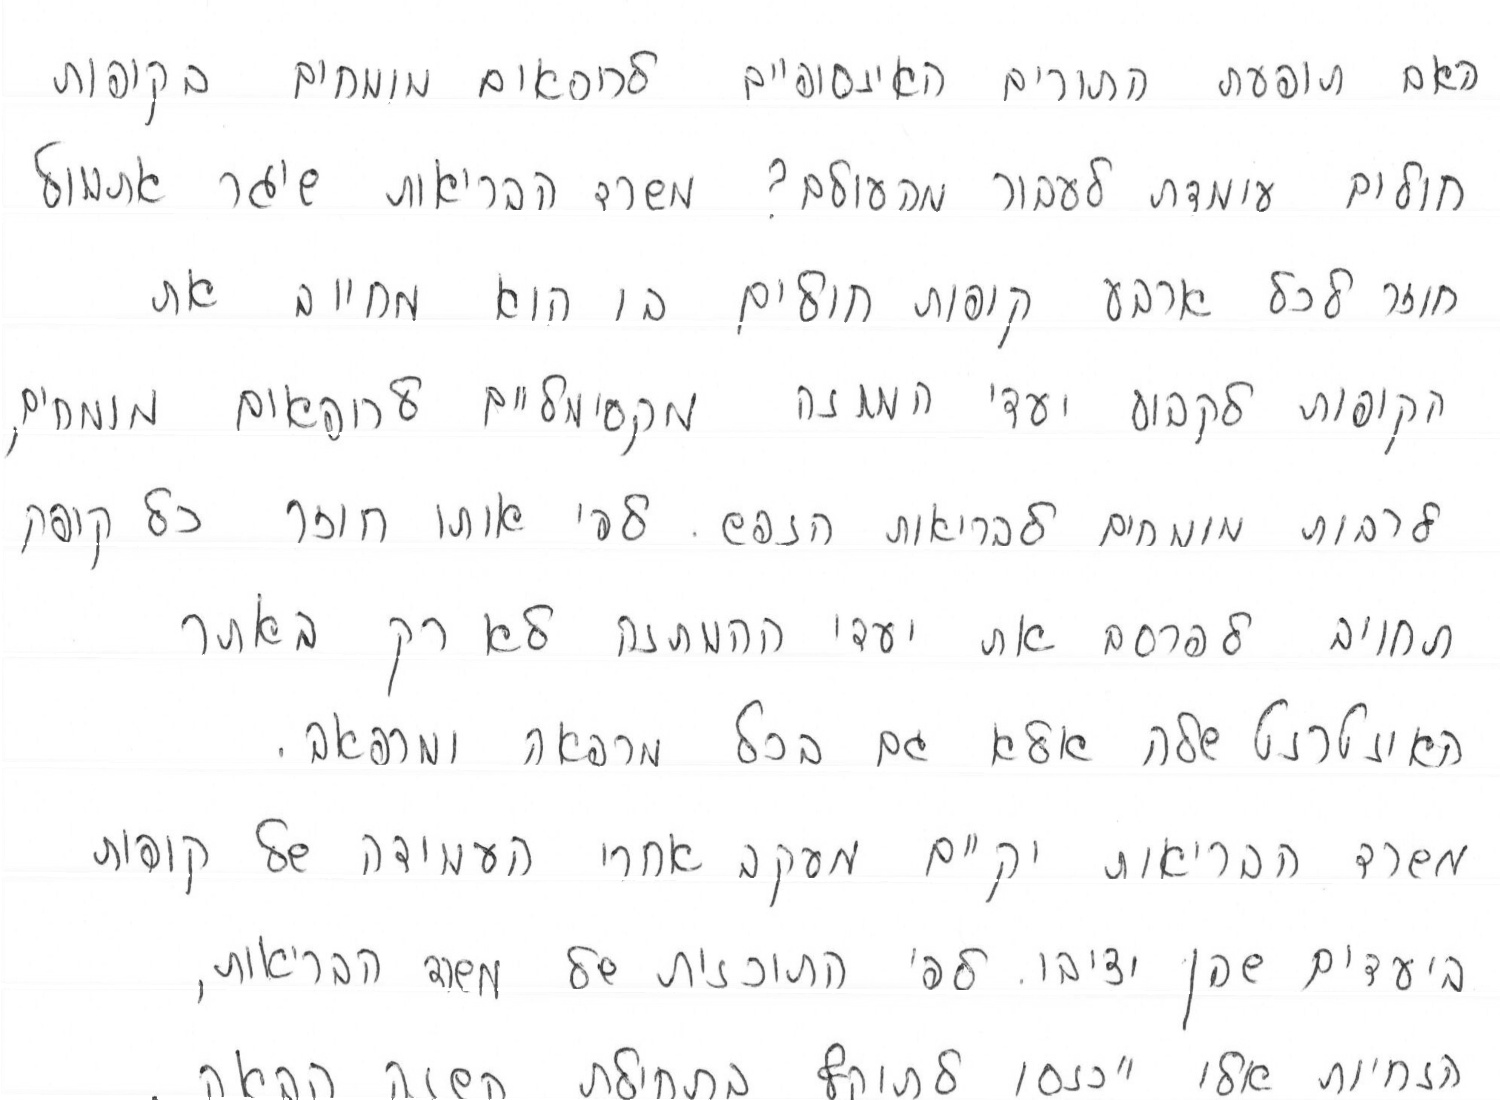 האם תופעת התורים האינסופיים לרופאים מומחים בקופות
חולים עומדת לעבור מהעולם? משרד הבריאות שיגר אתמול
חוזר לכל ארבע קופות חולים בו הוא מחייב את
הקופות לקבוע יעדי המתנה מקסימליים לרופאים מומחים,
לרבות מומחים לבריאות הנפש. לפי אותו חוזר כל קופה
תחויב לפרסם את יעדי ההמתנה לא רק באתר
האינטרנט שלה אלא גם בכל מרפאה ומרפאה.
משרד הבריאות יקיים מעקב אחרי העמידה של קופות
ביעדים שהן יציבו. לפי התוכנית של משרד הבריאות,
הנחיות אלו ייכנסו לתוקף בתחילת השנה הבאה.